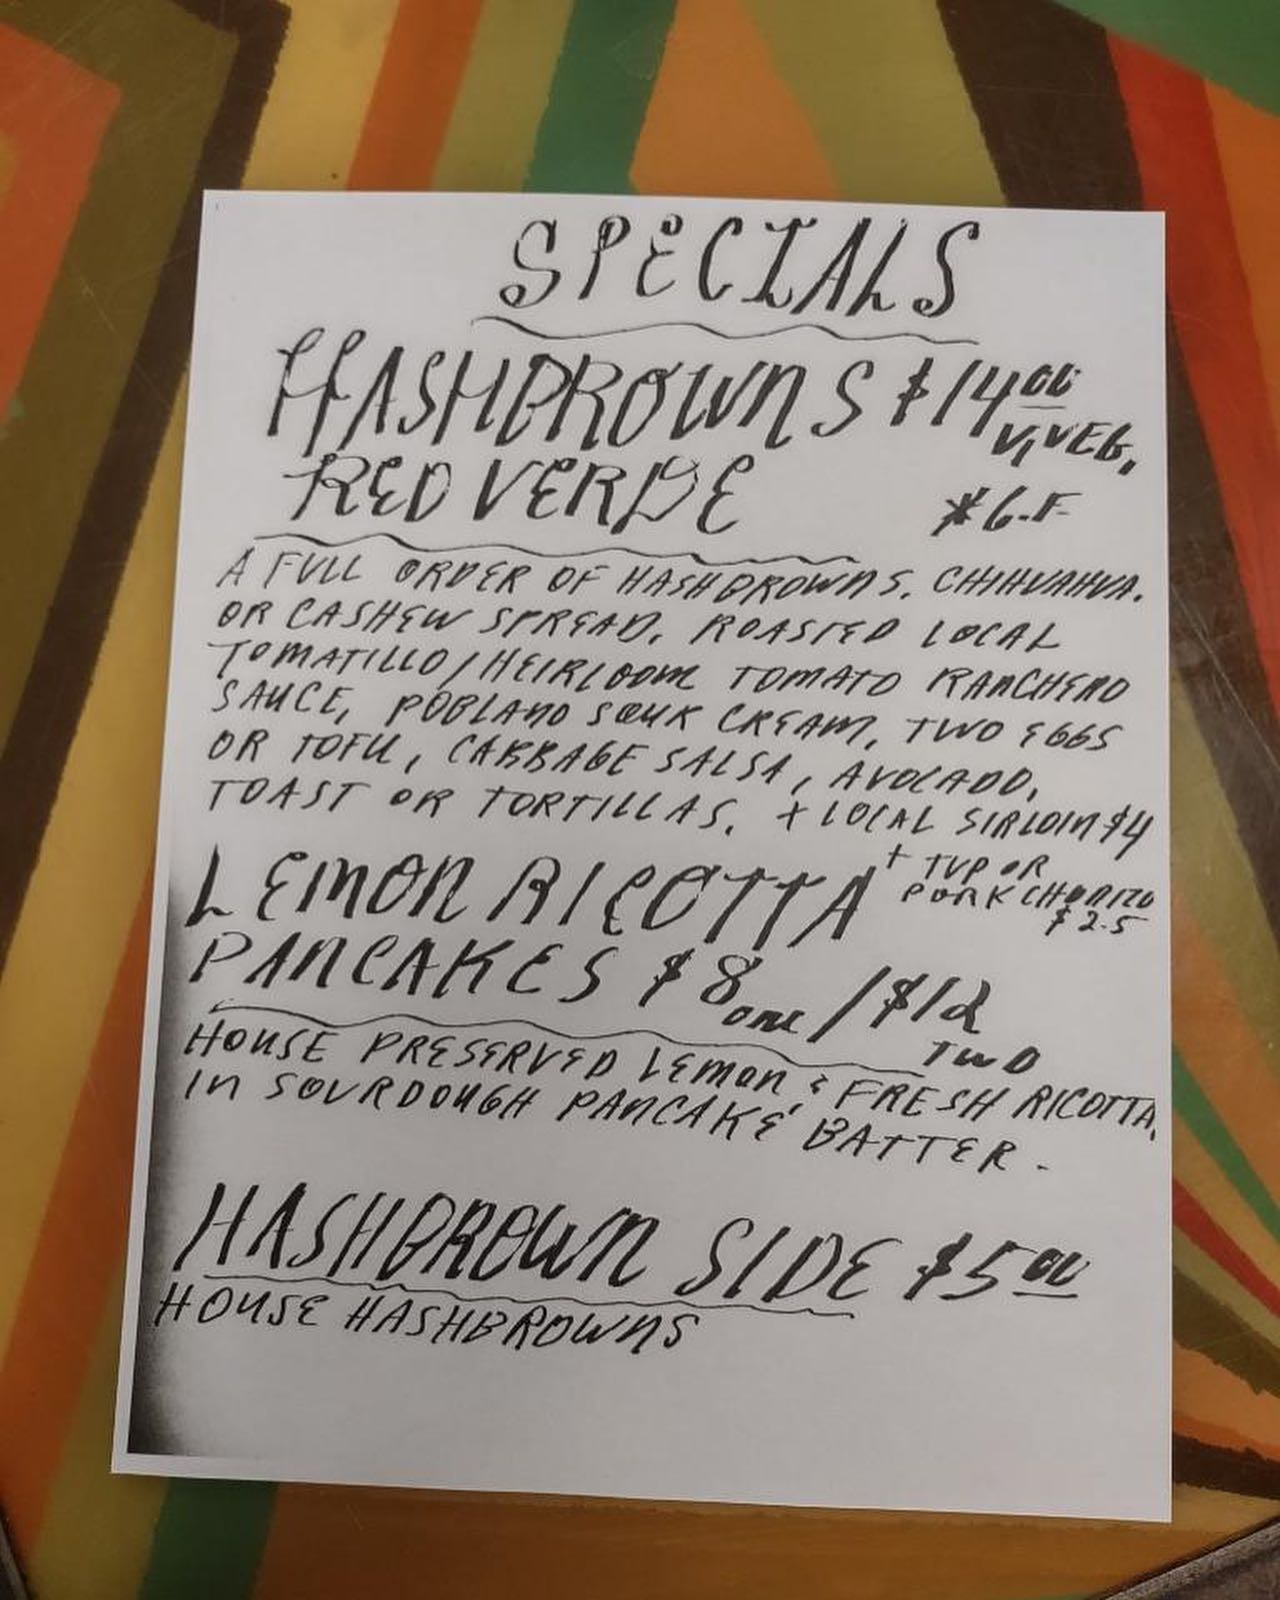 SPECIALS
HASHBROWNS $14.00
V, VEG,
RED VERDE *G.F.
A FULL ORDER OF HASHBROWNS. CHIHUAHUA.
OR CASHEW SPREAD. ROASTED LOCAL
TOMATILLO/HEIRLOOM TOMATO RANCHERO
SAUCE, POBLANO SOUR CREAM, TWO EGGS
OR TOFU, CABBAGE SALSA, AVOCADO,
TOAST OR TORTILLAS. + LOCAL SIRLOIN $4
+ TVP OR
PORK CHORIZO
$2.5
LEMON RICOTTA
PANCAKES $8 one / $12
TWO
HOUSE PRESERVED LEMON & FRESH RICOTTA,
IN SOURDOUGH PANCAKE BATTER.
HASHBROWN SIDE $5.00
HOUSE HASHBROWNS